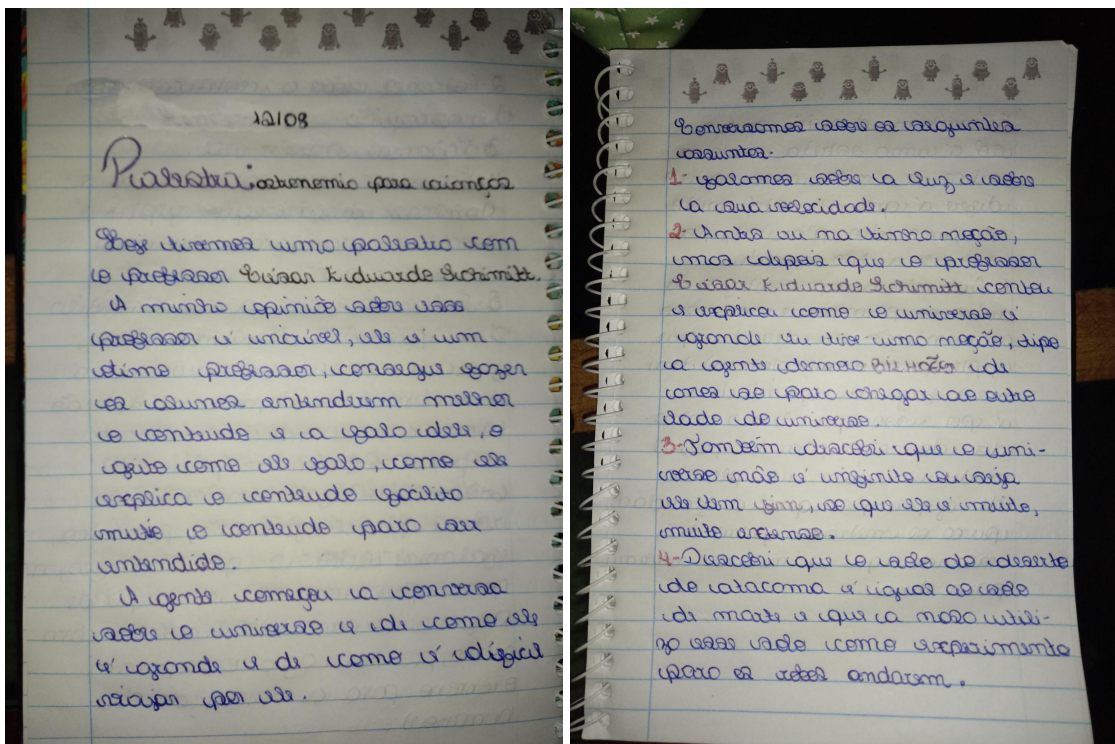 12/08
Palestra: astronomia para crianças
Hoje tivemos uma palestra com
o professor César Eduardo Schimitt.
A minha opinião sobre esse
professor é incrível, ele é um
ótimo professor, consegue fazer
os alunos entenderem melhor
o conteudo e a fala dele, o
jeito como ele fala, como ele
explica o conteudo facilita
muito o conteudo para ser
entendido.
A gente começou a conversa
sobre o universo e de como ele
é grande e de como é difícil
viajar por ele.
Conversamos sobre os seguintes
assuntos.
1- falamos sobre a luz e sobre
a sua velocidade.
2- Antes eu na tinha noção,
mas depois que o professor
César Eduardo Schimitt contou
e explicou como o universo é
grande eu tive uma noção, tipo
a gente demora BILHÕES de
anos so para chegar ao outro
lado do universo.
3- Também descobri que o uni-
verso não é infinito ou seja
ele tem fim, so que ele é muito,
muito extenso.
4- Descobri que o solo do deserto
do atacama é igual ao solo
de marte e que a nasa utili-
za esse solo como experimento
para os robos andarem.